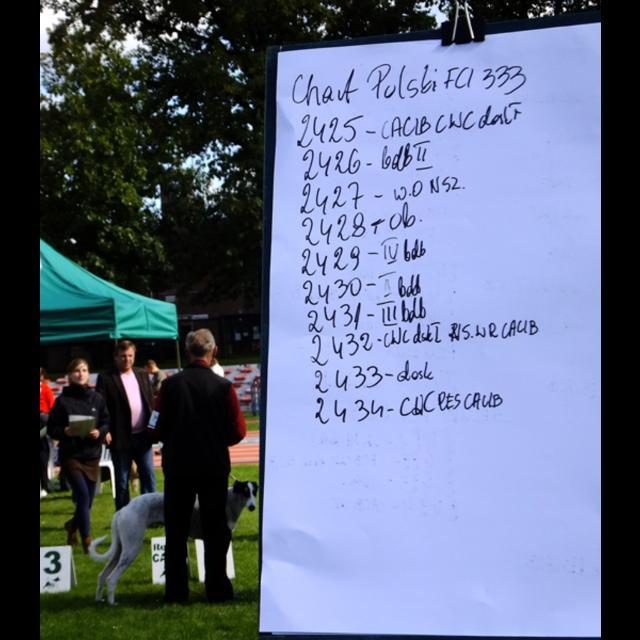 Chart Polski FCI 333
2425 - CACIB CWC dosk I
2426 - bdb II
2427 - W.O NSZ.
2428 - ob.
2429 - IV bdb
2430 - II bdb
2431 - III bdb
2432 - CWC dosk I NS. WR CACIB
2433 - dosk
2434 - CWC RES CACIB
3
Re
CA